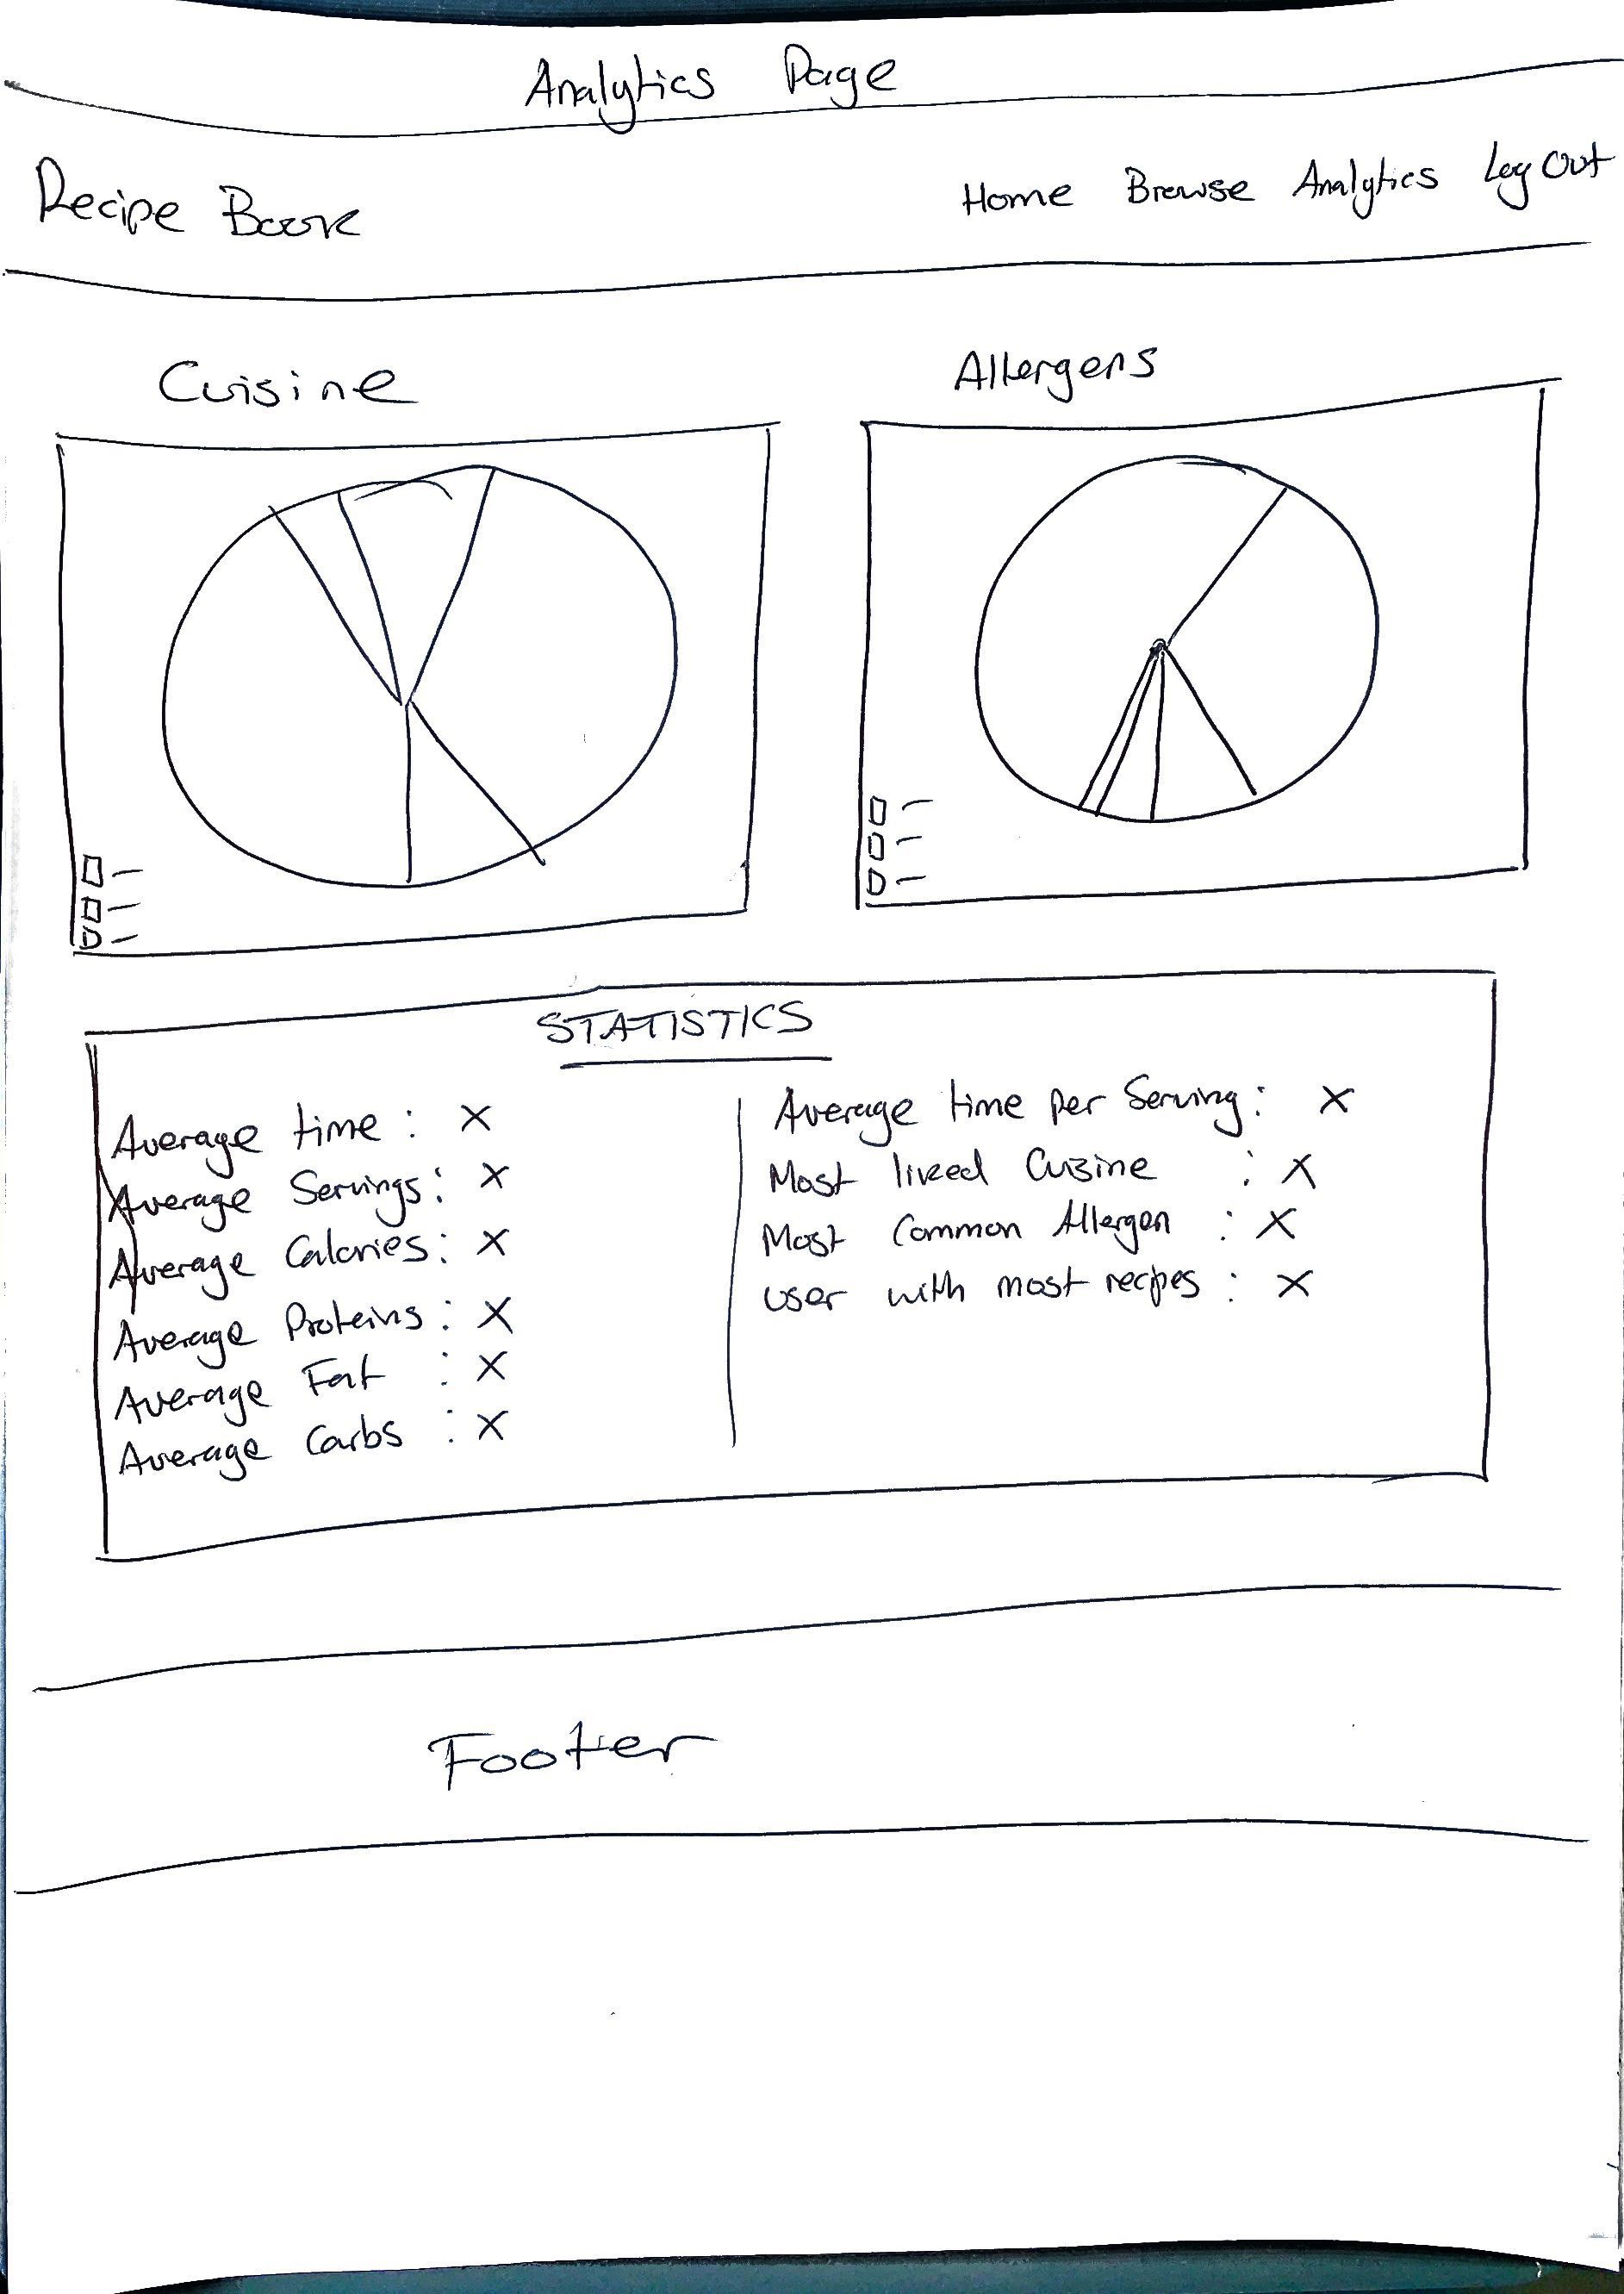 Analytics Page
Recipe Book
Home Browse Analytics Log Out
Cuisine
Allergens
STATISTICS
Average time : X
Average Servings : X
Average Calories : X
Average Proteins : X
Average Fat : X
Average Carbs : X
Average time per Serving : X
Most liked Cuisine : X
Most Common Allergen : X
user with most recipes : X
Footer